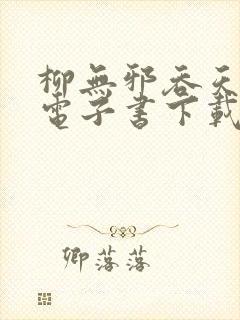 柳無邪吞天
電子書下載
卿落落